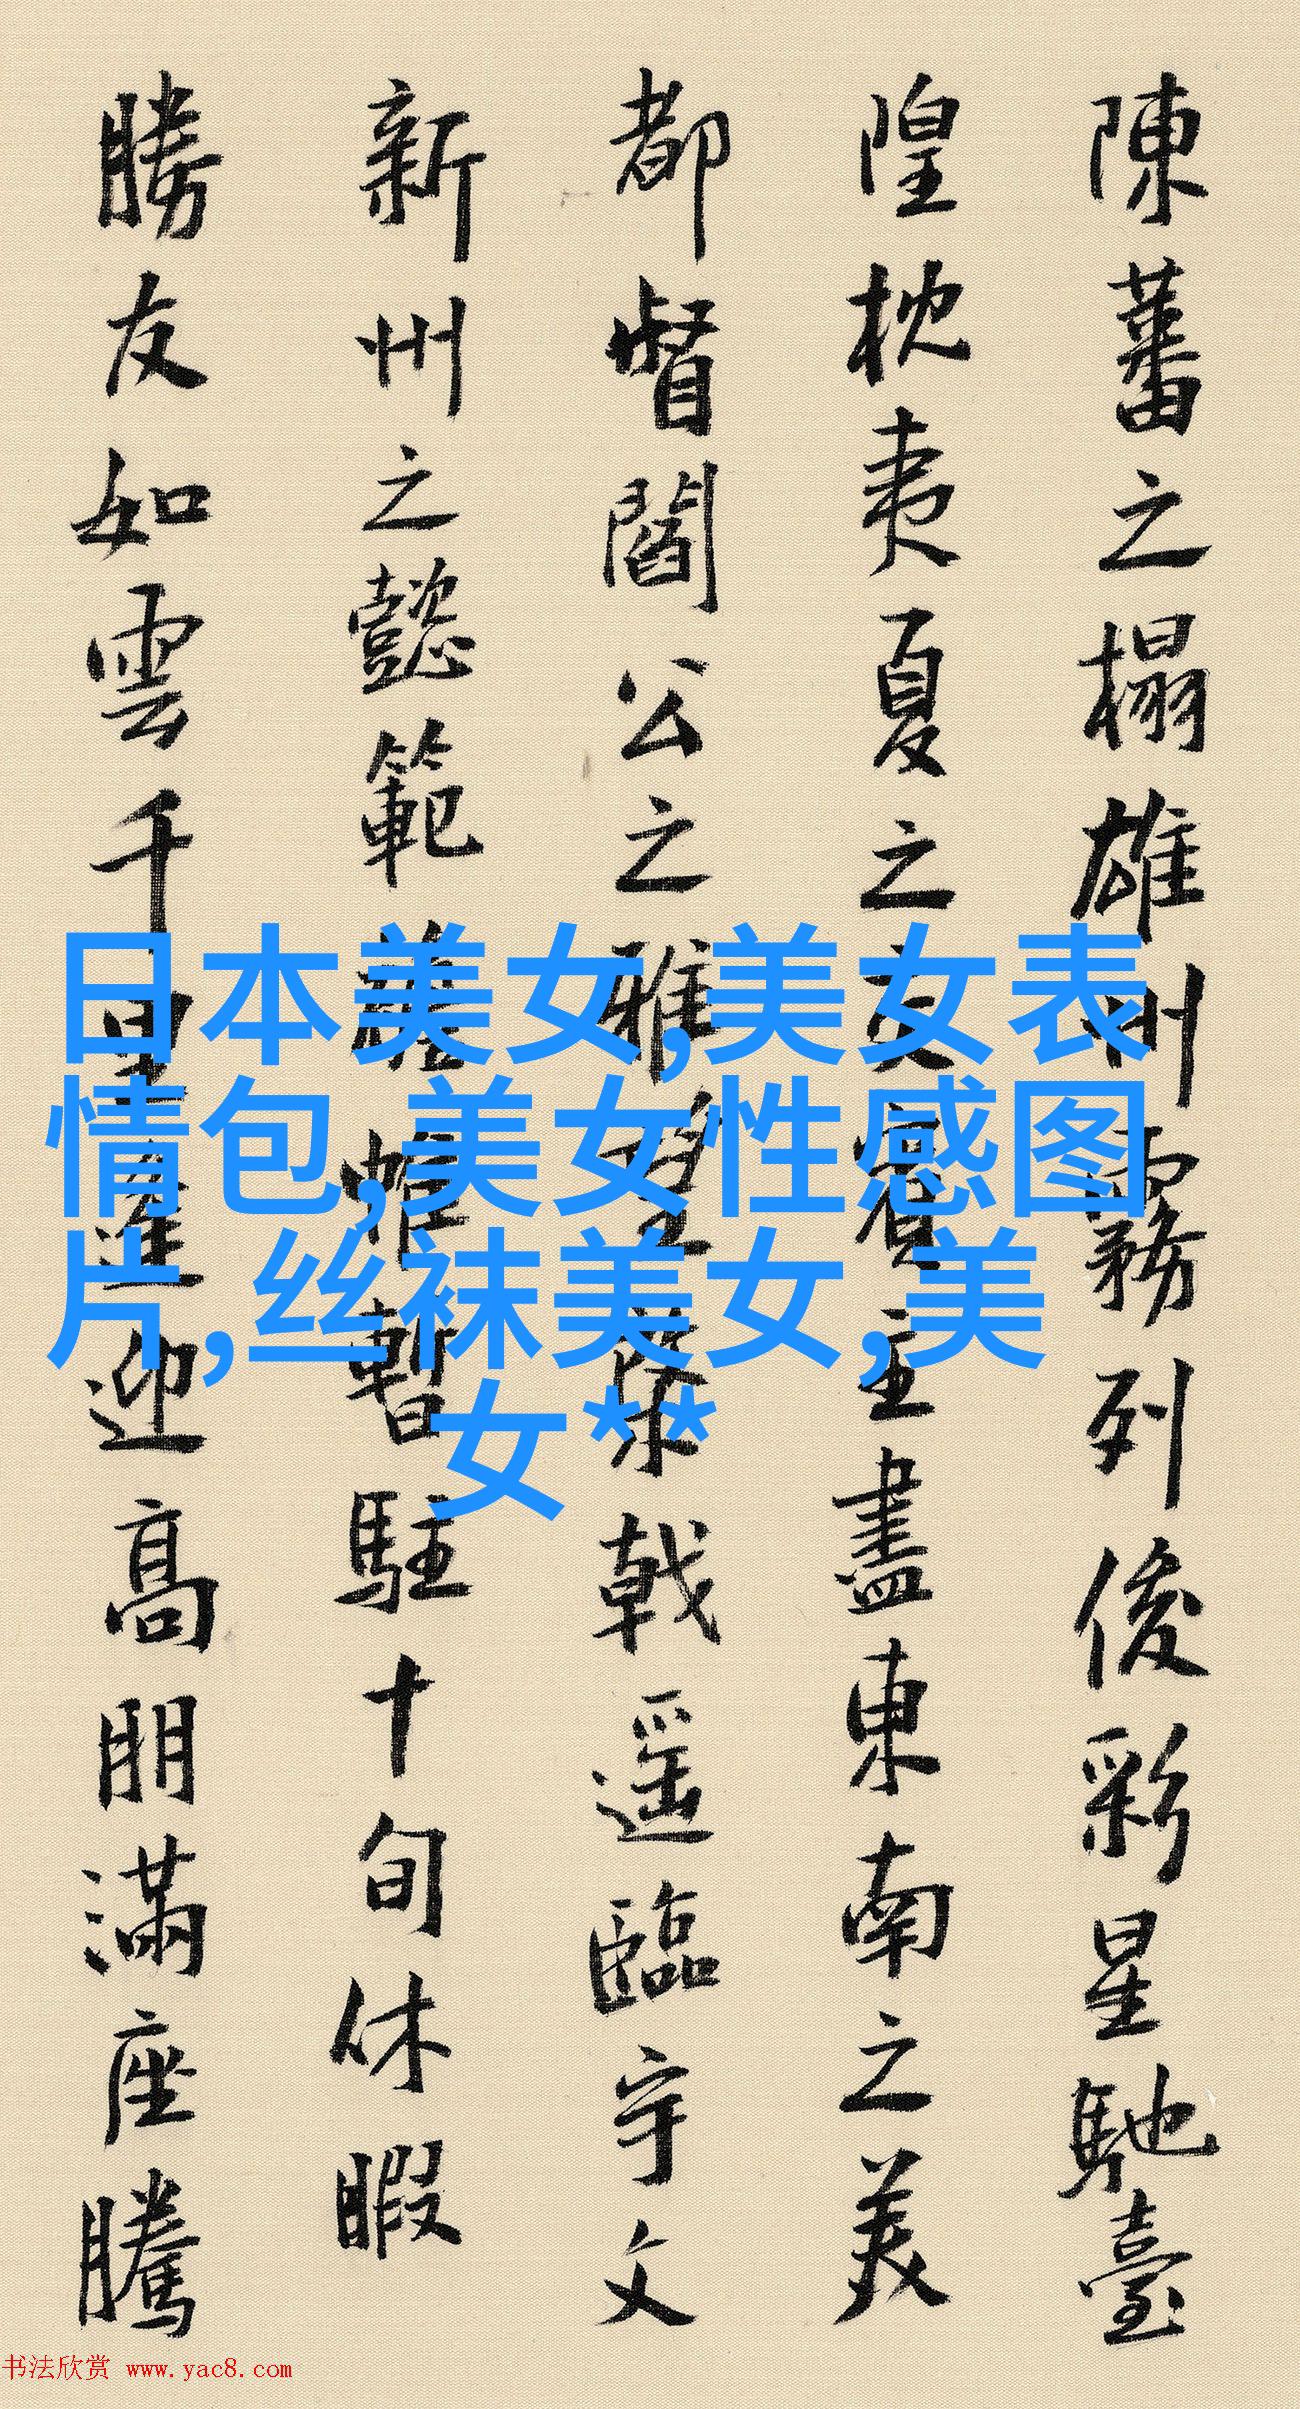 陳蕃之榻雄州霧列俊彩星馳臺
隍枕夷夏之交賓主盡東南之美
都督閻公之雅望棨戟遥臨宇文
新州之懿範襜帷暫駐十旬休暇
勝友如雲千里逢迎高朋滿座騰
日本美女,美女表
情包,美女性感图
片,丝袜美女,美
女**
书法欣赏 www.yac8.com